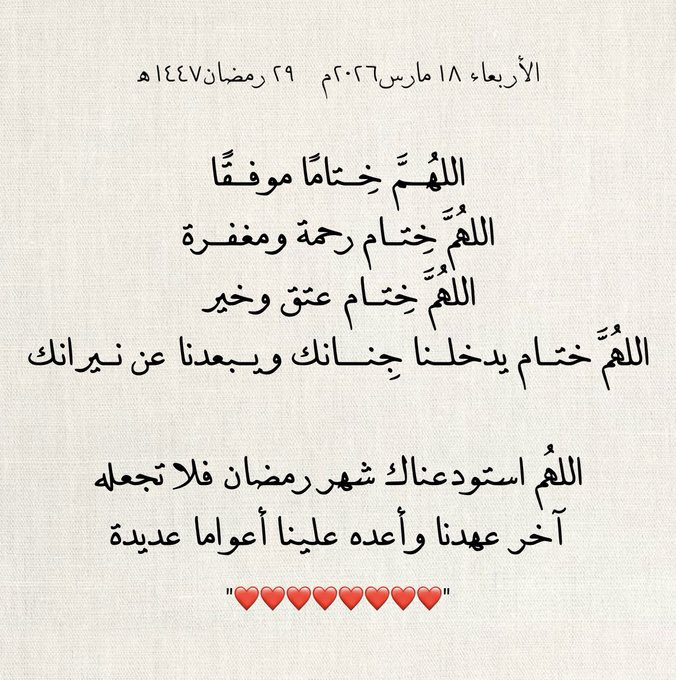 الأربعاء ١٨ مارس٢٠٢٦م ٢٩ رمضان١٤٤٧هـ
اللهُــمَّ خِــتامًا موفــقًّا
اللهُمَّ خِتــام رحمة ومغفــرة
اللهُمَّ خِتــام عتق وخير
اللهُمَّ ختــام يدخلــنا جِنــــانك ويــبعدنا عن نــيرانك
اللهُم استودعناك شهر رمضان فلا تجعله
آخر عهدنا وأعده علينا أعواما عديدة
"❤️❤️❤️❤️❤️❤️❤️❤️"